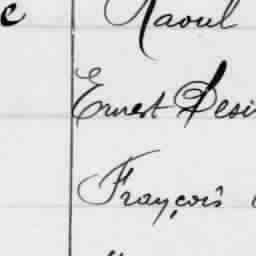 c Raoul
Ernest Desi
François